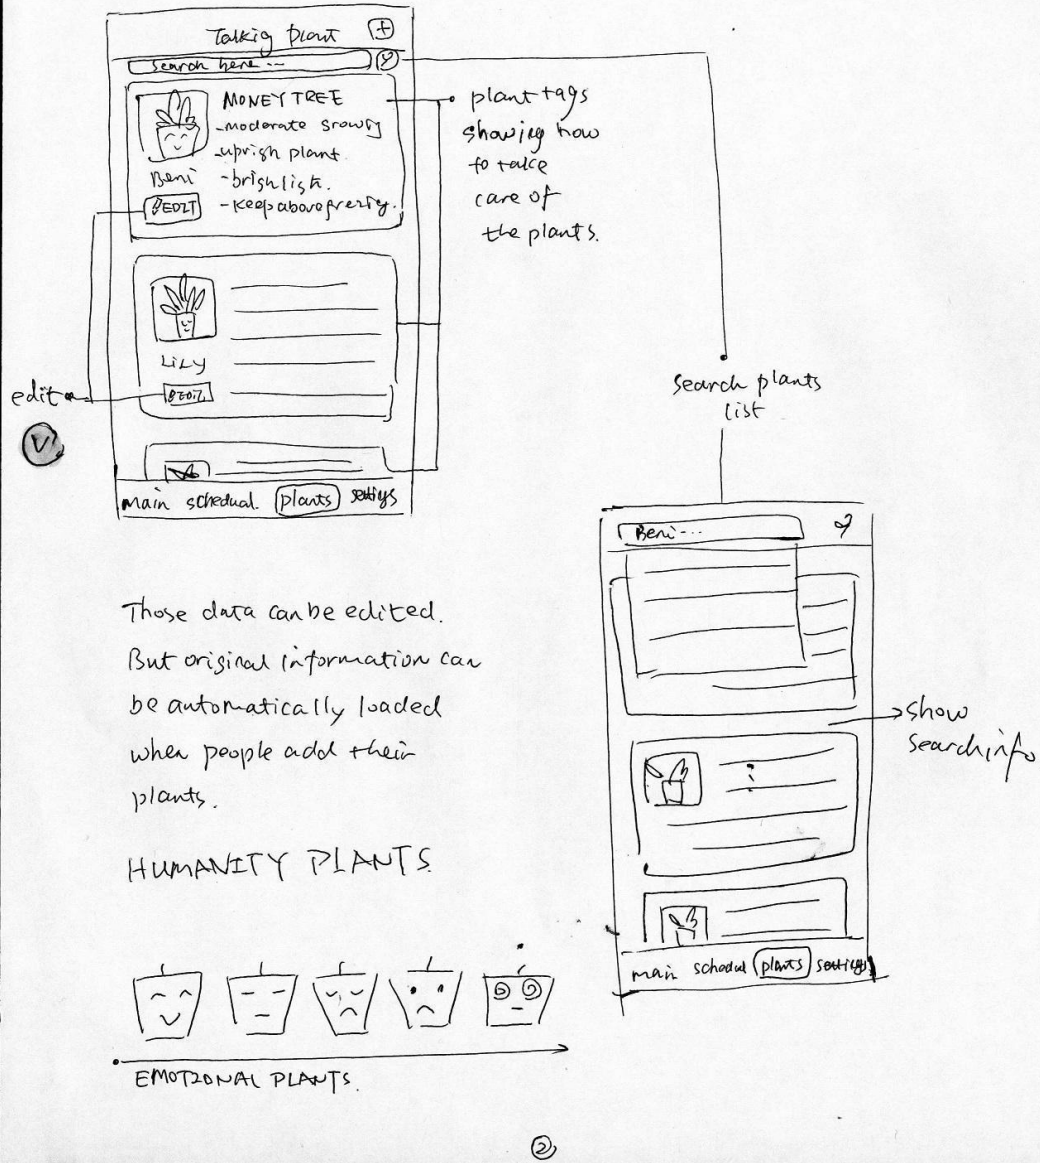 Talkig Plant +
Search here ...
MONEY TREE
-moderate growig
-uprigh plant.
-brigh ligh.
-Keep above frezig.
Beni
EDIT
plant tags
showing how
to take
care of
the plants.
LiLy
EDIT
edit
V
main schedual. plants settigs
search plants
list
Beni...
show
search info
main schedual plants settigs
Those data can be edited.
But original information can
be automatically loaded
when people add their
plants.
HUMANITY PLANTS
EMOTIONAL PLANTS.
2